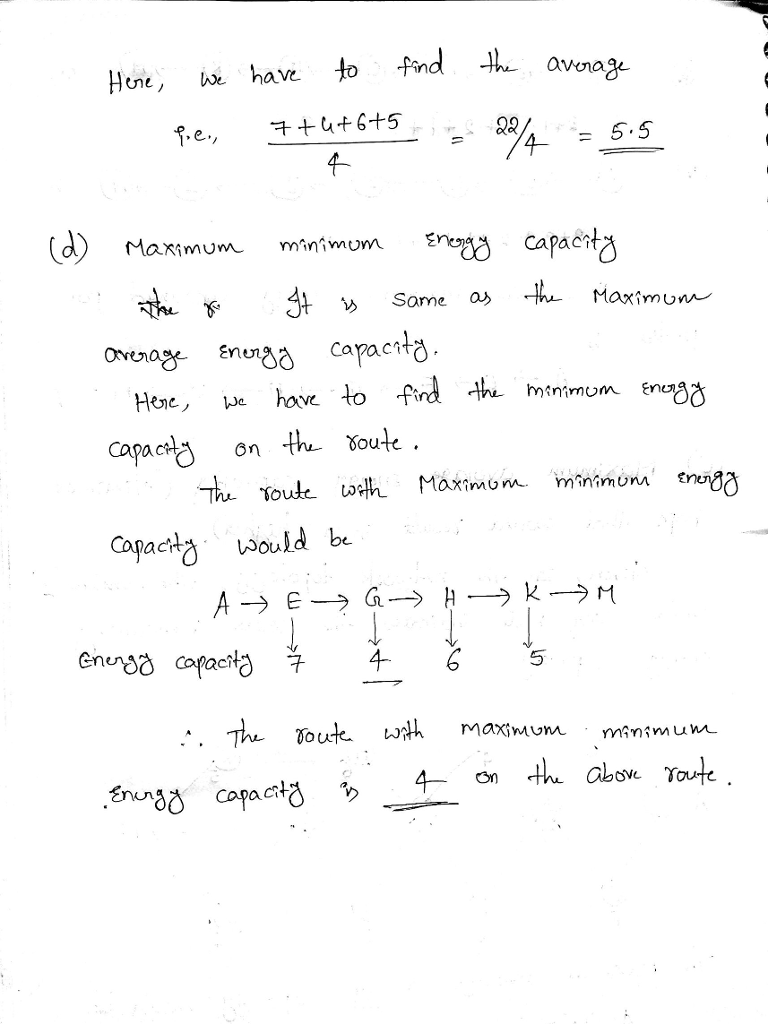 Here, we have to find the average
i.e., 7+4+6+5 / 4 = 22/4 = 5.5
(d) Maximum minimum Energy capacity
The r It is same as the Maximum
average energy capacity.
Here, we have to find the minimum energy
capacity on the route.
The route with Maximum minimum energy
capacity would be
A → E → G → H → K → M
Energy capacity 7 4 6 5
∴ The route with maximum minimum
Energy capacity is 4 on the above route.